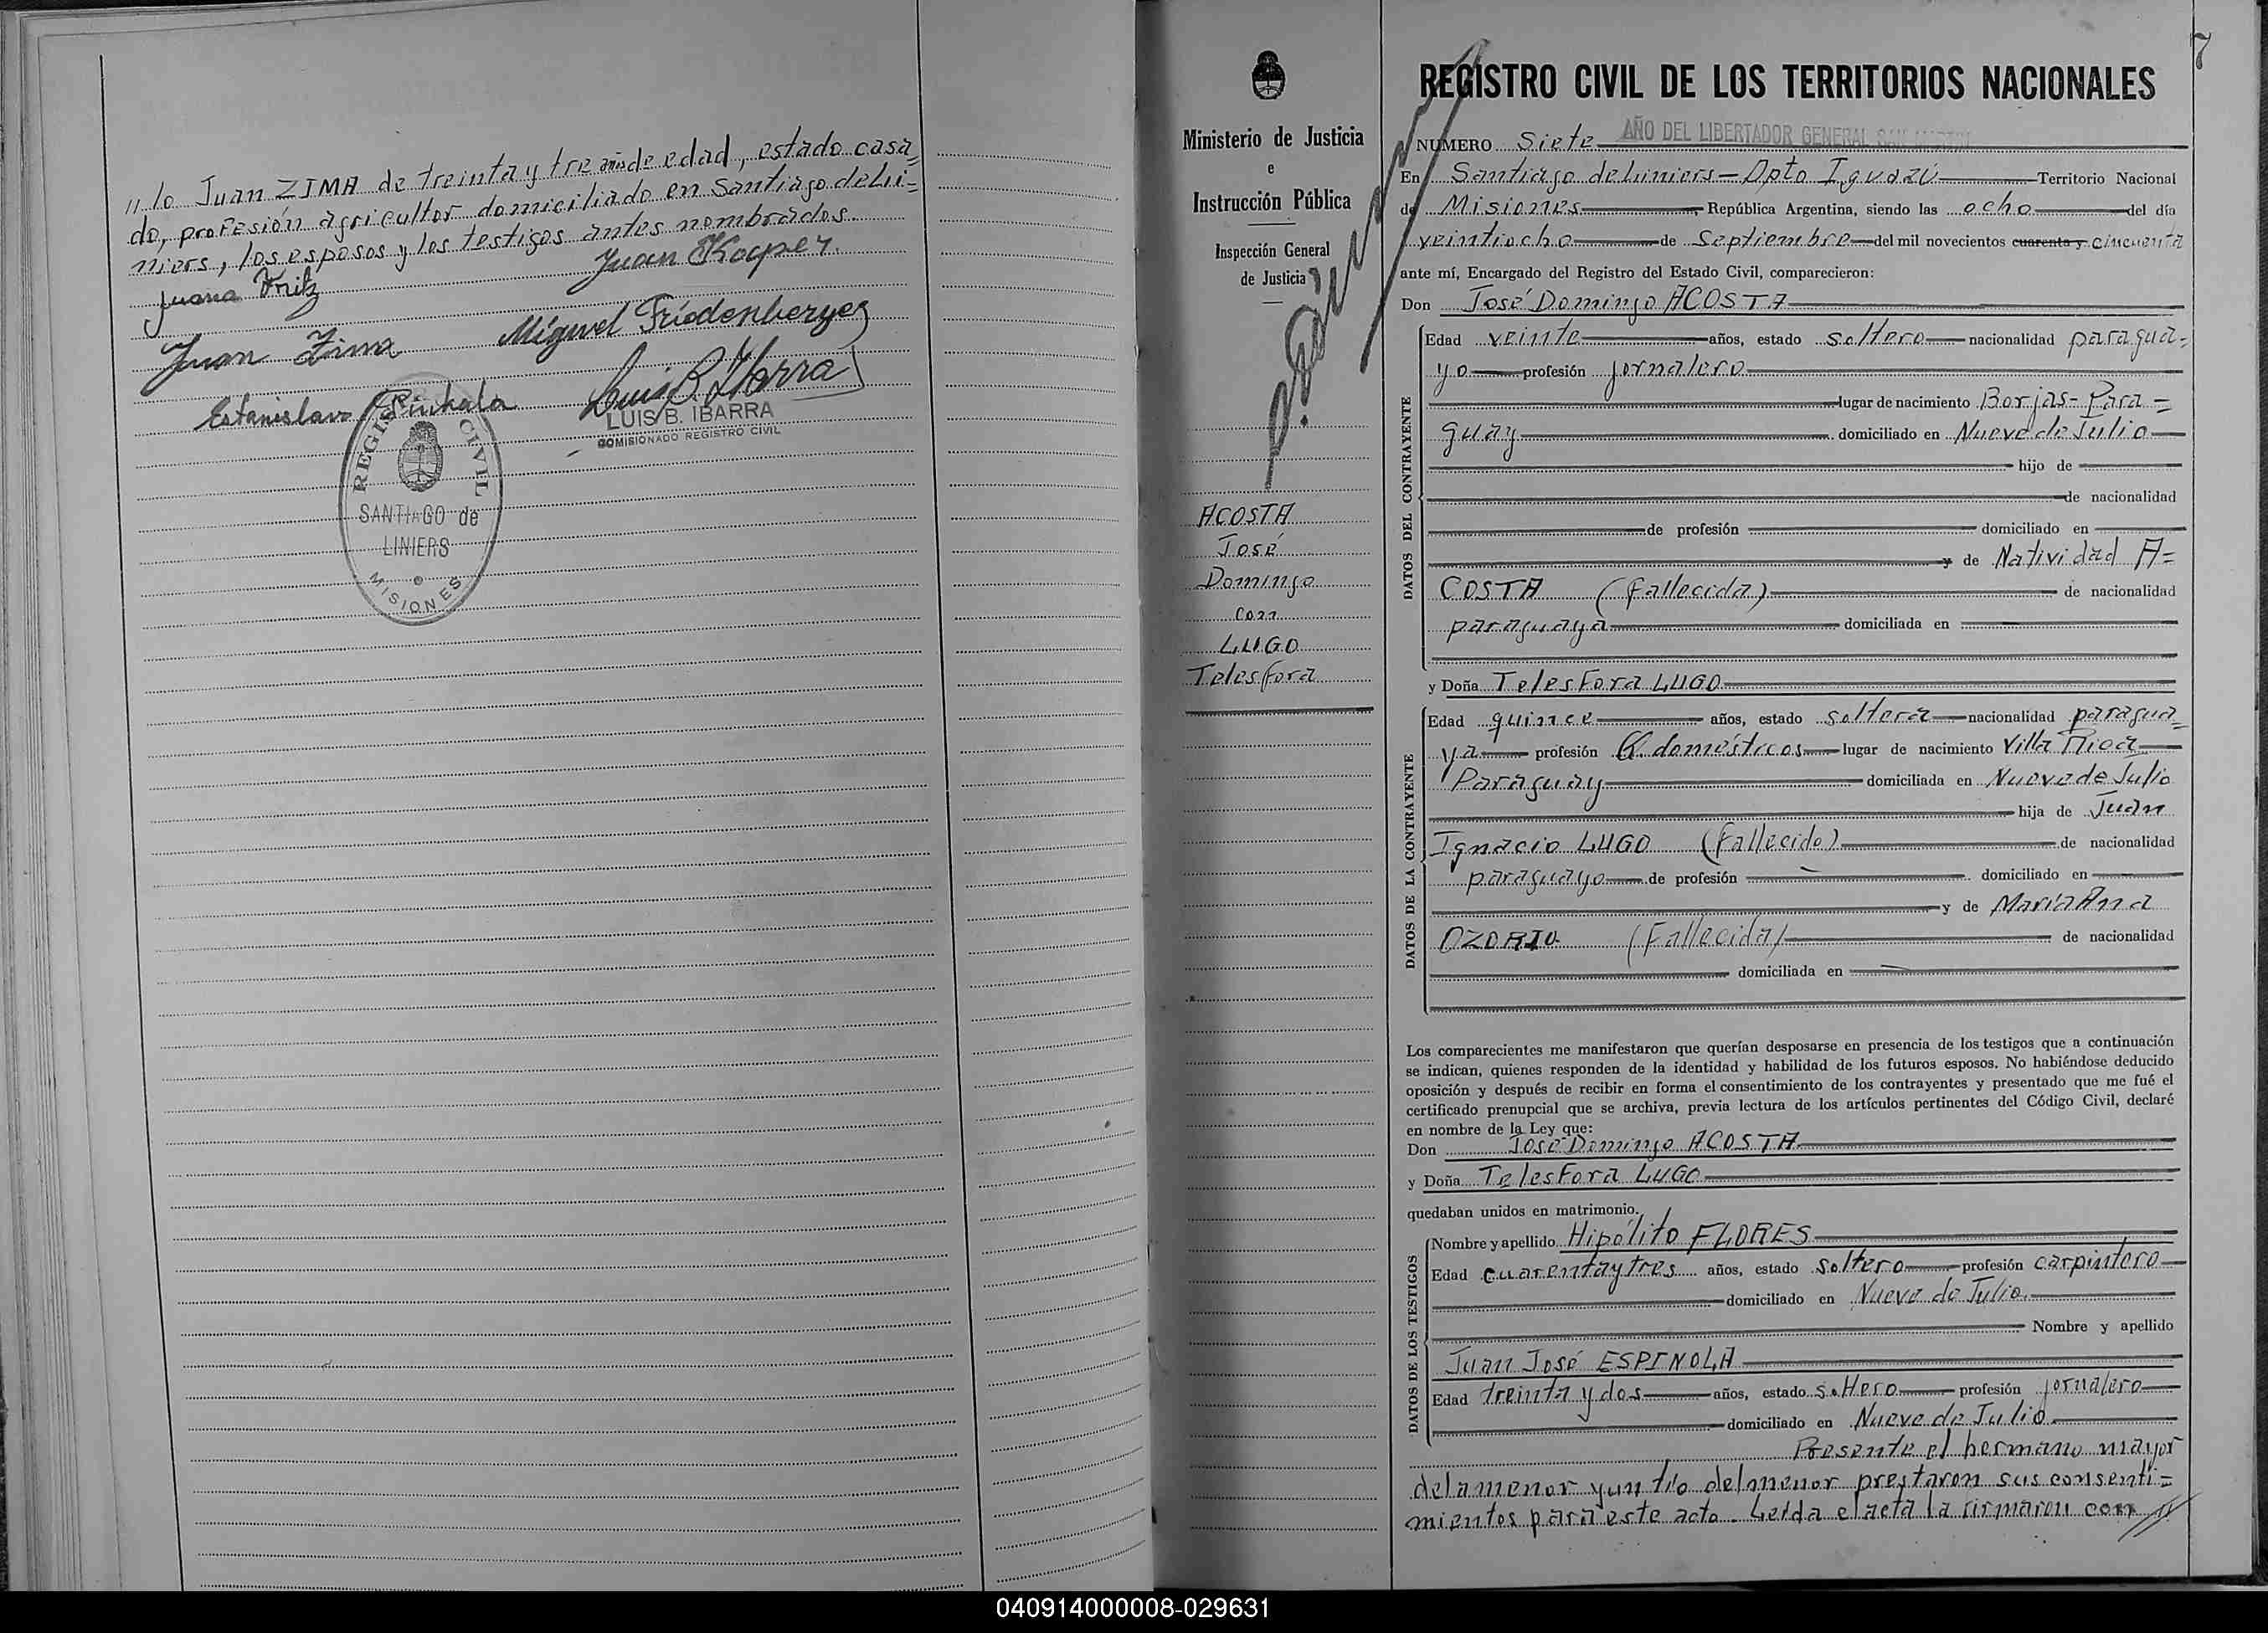 "lo Juan ZIMA de treinta y tre años de edad, estado casa=
do, profesión agricultor domiciliado en Santiago de Li=
niers, los esposos y los testigos antes nombrados.
Juana Fritz
Juan Kasper.
Juan Zima
Miguel Friedenberger
Estanislavo
Luis B. Ibarra
LUIS B. IBARRA
COMISIONADO REGISTRO CIVIL
REGISTRO CIVIL
SANTIAGO de
LINIERS
MISIONES
Ministerio de Justicia
e
Instrucción Pública
Inspección General
de Justicia
ACOSTA
José
Domingo
con
LUGO
Telesfora
7
REGISTRO CIVIL DE LOS TERRITORIOS NACIONALES
AÑO DEL LIBERTADOR GENERAL SAN MARTIN
NUMERO Siete
En Santiago de Liniers - Dpto Iguazú Territorio Nacional
de Misiones, República Argentina, siendo las ocho del día
veintiocho de Septiembre del mil novecientos cuarenta y cincuenta
ante mí, Encargado del Registro del Estado Civil, comparecieron:
Don José Domingo ACOSTA
DATOS DEL CONTRAYENTE
Edad veinte años, estado soltero nacionalidad paragua=
yo profesión jornalero
lugar de nacimiento Borjas- Para=
guay domiciliado en Nueve de Julio
hijo de
de nacionalidad
de profesión domiciliado en
y de Natividad A=
COSTA (Fallecida) de nacionalidad
paraguaya domiciliada en
y Doña Telesfora LUGO
DATOS DE LA CONTRAYENTE
Edad quince años, estado soltera nacionalidad paragua=
ya profesión Q. domésticos lugar de nacimiento Villa Rica
Paraguay domiciliada en Nueve de Julio
hija de Juan
Ignacio LUGO (Fallecido) de nacionalidad
paraguayo de profesión domiciliado en
y de María Ana
OZORIO (Fallecida) de nacionalidad
domiciliada en
Los comparecientes me manifestaron que querían desposarse en presencia de los testigos que a continuación
se indican, quienes responden de la identidad y habilidad de los futuros esposos. No habiéndose deducido
oposición y después de recibir en forma el consentimiento de los contrayentes y presentado que me fué el
certificado prenupcial que se archiva, previa lectura de los artículos pertinentes del Código Civil, declaré
en nombre de la Ley que:
Don José Domingo ACOSTA
y Doña Telesfora LUGO
quedaban unidos en matrimonio.
DATOS DE LOS TESTIGOS
Nombre y apellido Hipólito FLORES
Edad cuarenta y tres años, estado soltero profesión carpintero
domiciliado en Nueve de Julio.
Nombre y apellido
Juan José ESPINOLA
Edad treinta y dos años, estado soltero profesión jornalero
domiciliado en Nueve de Julio.
Presente el hermano mayor
de la menor y un tío del menor prestaron sus consenti=
mientos para este acto. Leída el acta la firmaron con //
040914000008-029631